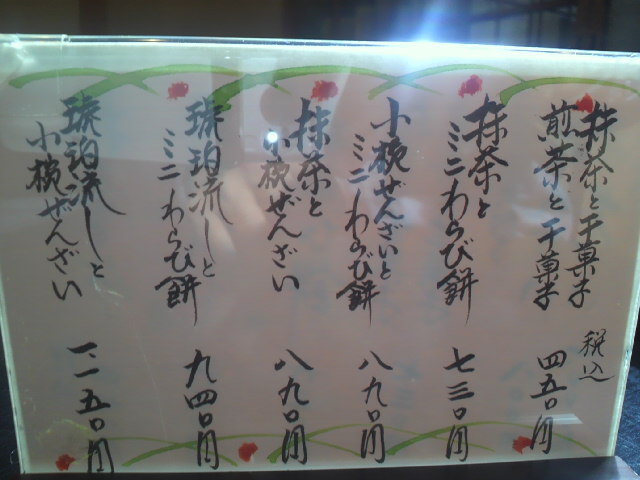 抹茶と干菓子
煎茶と干菓子
税込
四五〇円
抹茶と
ミニわらび餅
七三〇円
小椀ぜんざいと
ミニわらび餅
八九〇円
抹茶と
小椀ぜんざい
八九〇円
琥珀流しと
ミニわらび餅
九四〇円
琥珀流しと
小椀ぜんざい
一一五〇円